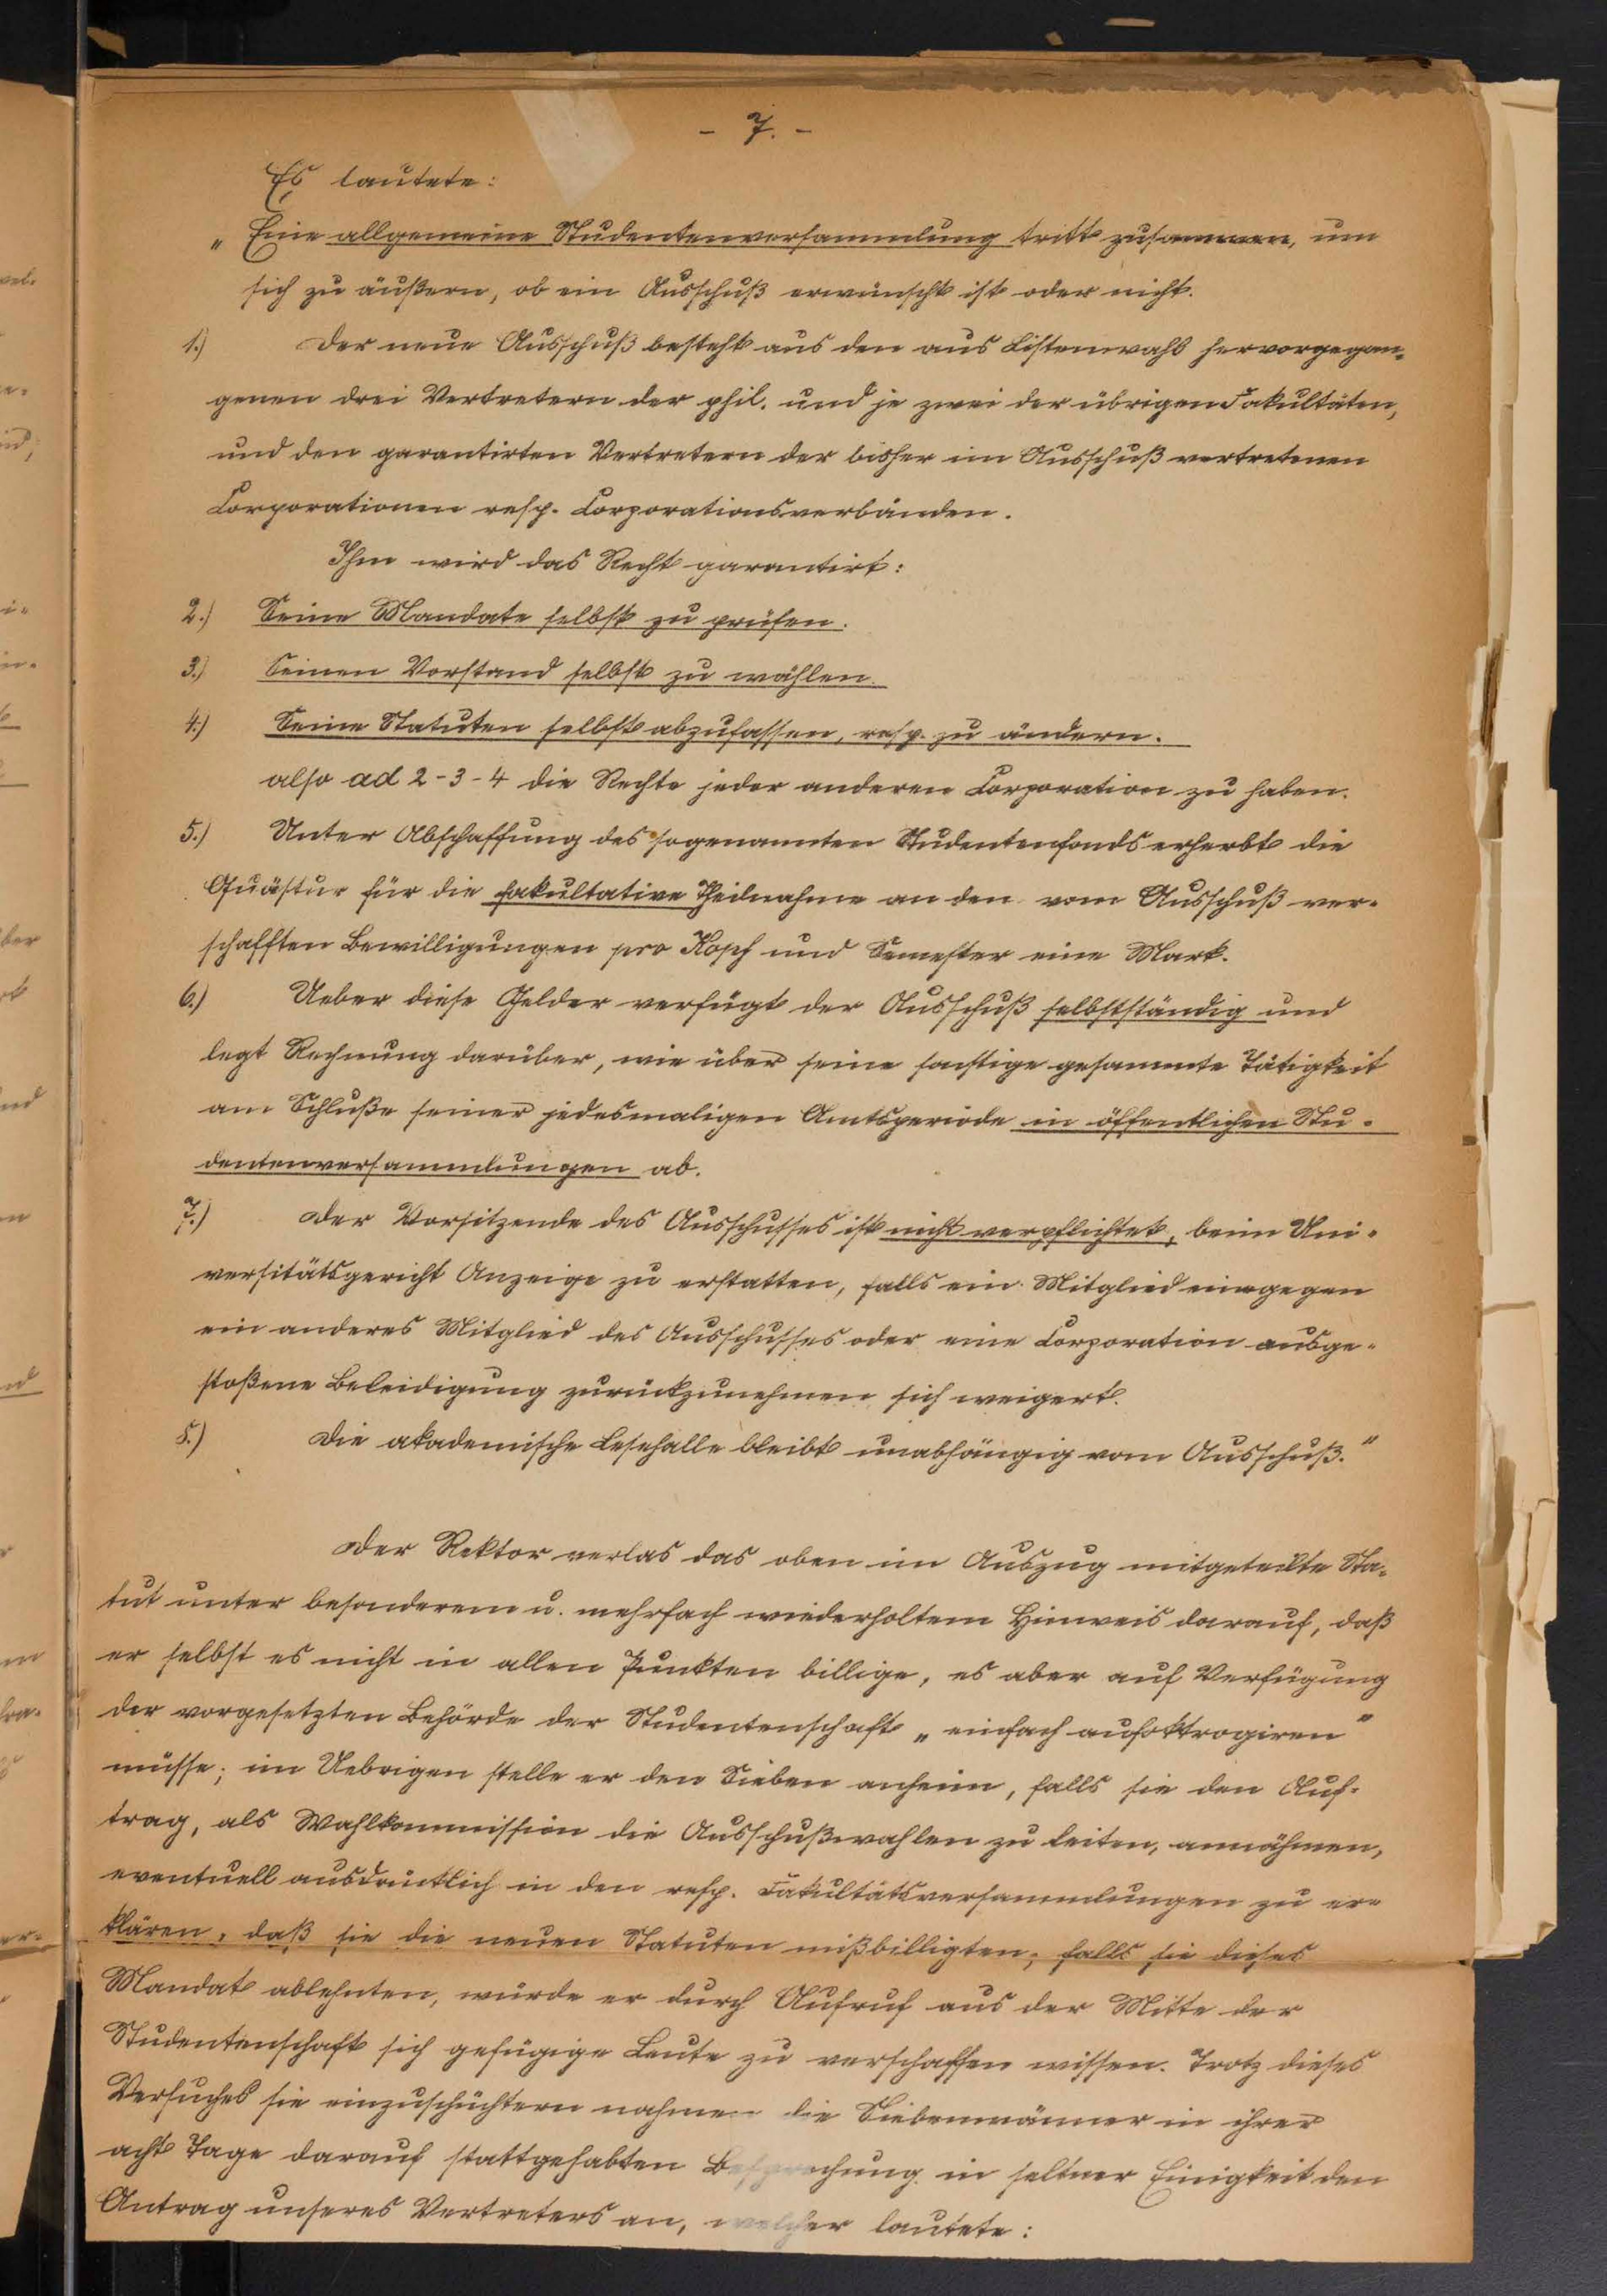 - 7. -
Es lautete:
„Eine allgemeine Studentenversammlung tritt zusammen, um
sich zu äußern, ob ein Ausschuß erwünscht ist oder nicht.
1.) Der neue Ausschuß besteht aus den aus Listenwahl hervorgegan-
genen drei Vertretern der phil. und je zwei der übrigen Fakultäten,
und den garantirten Vertretern der bisher im Ausschuß vertretenen
Corporationen resp. Corporationsverbänden.
Ihm wird das Recht garantirt:
2.) Seine Mandate selbst zu prüfen.
3.) Seinen Vorstand selbst zu wählen.
4.) Seine Statuten selbst abzufassen, resp. zu ändern.
also ad 2-3-4 die Rechte jeder anderen Corporation zu haben.
5.) Unter Abschaffung des sogenannten Studentenfonds erhebt die
Quästur für die fakultative Theilnahme an den vom Ausschuß ver-
schafften Bewilligungen pro Kopf und Semester eine Mark.
6.) Ueber diese Gelder verfügt der Ausschuß selbstständig und
legt Rechnung darüber, wie über seine sonstige gesammte Tätigkeit
am Schluße seiner jedesmaligen Amtsperiode in öffentlichen Stu-
dentenversammlungen ab.
7.) Der Vorsitzende des Ausschusses ist nicht verpflichtet, beim Uni-
versitätsgericht Anzeige zu erstatten, falls ein Mitglied eine gegen
ein anderes Mitglied des Ausschusses oder eine Corporation ausge-
stoßene Beleidigung zurückzunehmen sich weigert.
8.) Die akademische Lesehalle bleibt unabhängig vom Ausschuß."
Der Rektor verlas das oben im Auszug mitgeteilte Sta-
tut unter besonderem u. mehrfach wiederholtem Hinweis darauf, daß
er selbst es nicht in allen Punkten billige, es aber auf Verfügung
der vorgesetzten Behörde der Studentenschaft „einfach aufoktrogiren"
müsse; im Uebrigen stelle er den Sieben anheim, falls sie den Auf-
trag, als Wahlkommission die Ausschußwahlen zu leiten, annähmen,
eventuell ausdrücklich in den resp. Fakultätsversammlungen zu er-
klären, daß sie die neuen Statuten mißbilligten; falls sie dieses
Mandat ablehnten, würde er durch Aufruf aus der Mitte der
Studentenschaft sich gefügige Leute zu verschaffen wissen. Trotz dieses
Versuches sie einzuschüchtern nahmen die Siebenmänner in ihrer
acht Tage darauf stattgehabten Besprechung in seltner Einigkeit den
Antrag unseres Vertreters an, welcher lautete: